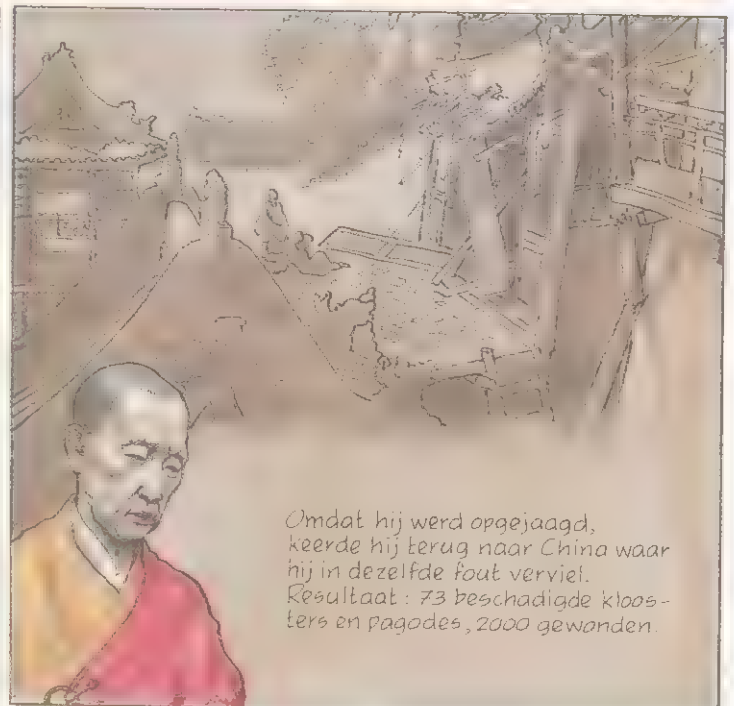 Omdat hij werd opgejaagd,
keerde hij terug naar China waar
hij in dezelfde fout verviel.
Resultaat : 73 beschadigde kloos-
ters en pagodes, 2000 gewonden.